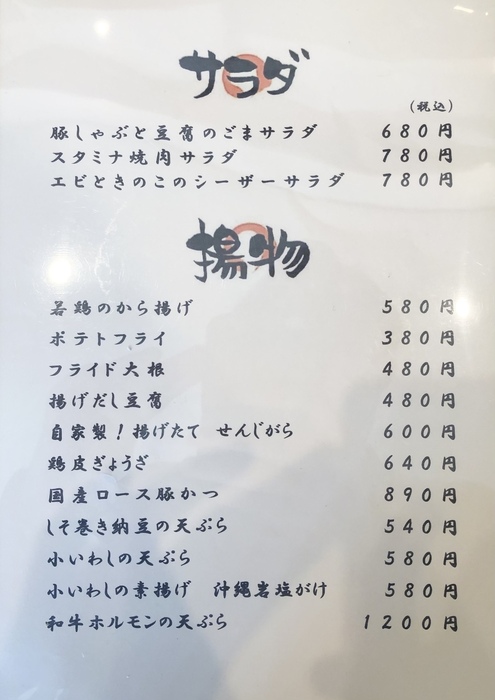 サラダ
（税込）
豚しゃぶと豆腐のごまサラダ 680円
スタミナ焼肉サラダ 780円
エビときのこのシーザーサラダ 780円
揚物
若鶏のから揚げ 580円
ポテトフライ 380円
フライド大根 480円
揚げだし豆腐 480円
自家製！揚げたて せんじがら 600円
鶏皮ぎょうざ 640円
国産ロース豚かつ 890円
しそ巻き納豆の天ぷら 540円
小いわしの天ぷら 580円
小いわしの素揚げ 沖縄岩塩がけ 580円
和牛ホルモンの天ぷら 1200円